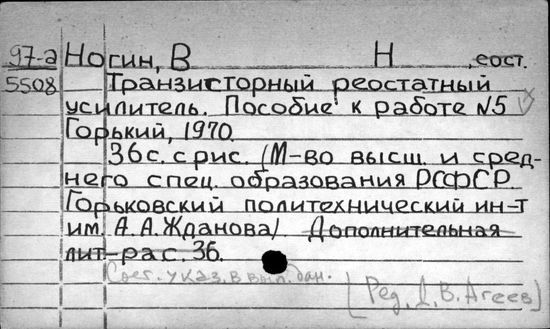 97-а Ногин, В Н , сост.
5508 Транзисторный реостатный
усилитель. Пособие к работе N5
Горький, 1970.
36 с. с рис. (М-во высш. и сред-
него спец. образования РСФСР.
Горьковский политехнический ин-т
им. А. А. Жданова). Дополнительная
лит-ра с. 36.
Сост. указ. в вып. дан.
[Ред. Д. В. Агеев]